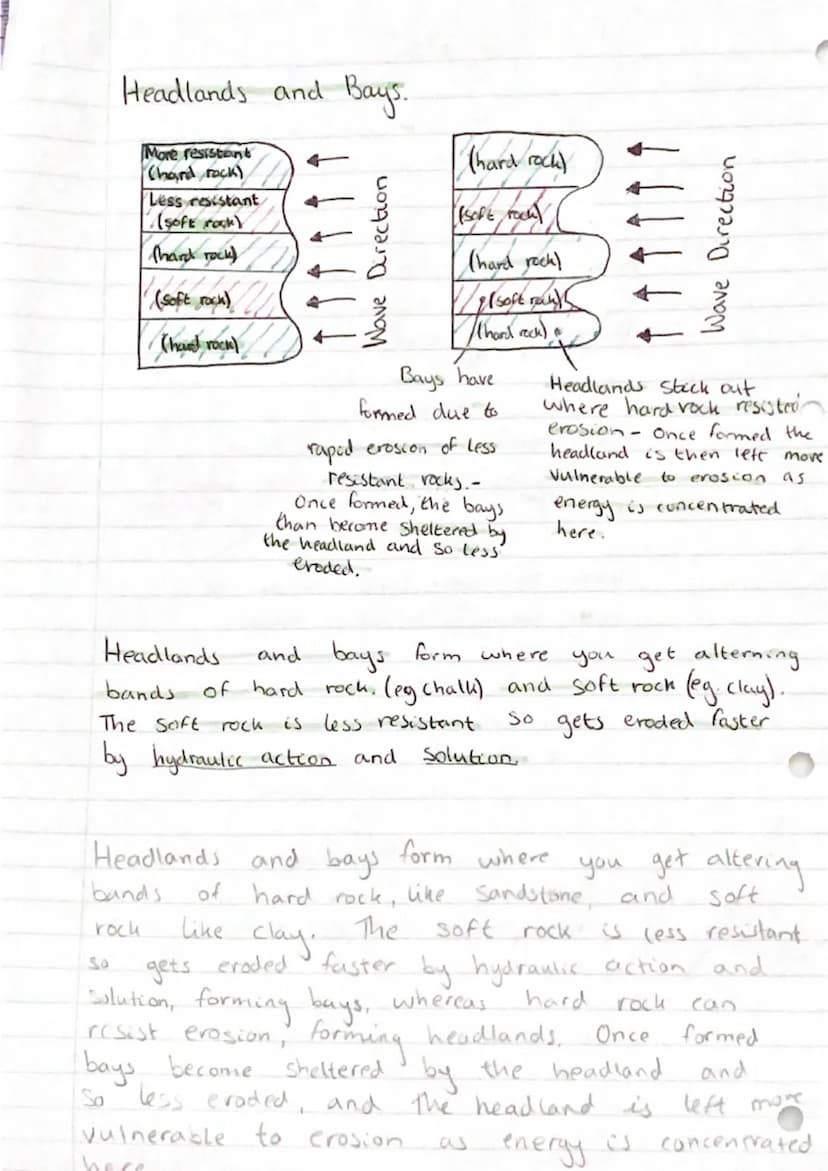 Headlands and Bays.
More resistant
(hard rock)
Less resistant
(soft rock)
(hard rock)
(soft rock)
(hard rock)
Wave Direction
(hard rock)
(soft rock)
(hard rock)
(soft rock)
(hard rock)
Wave Direction
Bays have
formed due to
rapid erosion of less
resistant rocks. -
Once formed, the bays
than become sheltered by
the headland and so less
eroded.
Headlands stick out
where hard rock resisted
erosion - Once formed the
headland is then left more
vulnerable to erosion as
energy is concentrated
here.
Headlands and bays form where you get alterning
bands of hard rock. (eg chalk) and soft rock (eg. clay).
The soft rock is less resistant so gets eroded faster
by hydraulic action and solution
Headlands and bays form where you get altering
bands of hard rock, like sandstone, and soft
rock like clay. The soft rock is less resistant
so gets eroded faster by hydraulic action and
solution, forming bays, whereas hard rock can
resist erosion, forming headlands. Once formed
bays become sheltered by the headland and
so less eroded, and the headland is left more
vulnerable to erosion as energy is concentrated
here